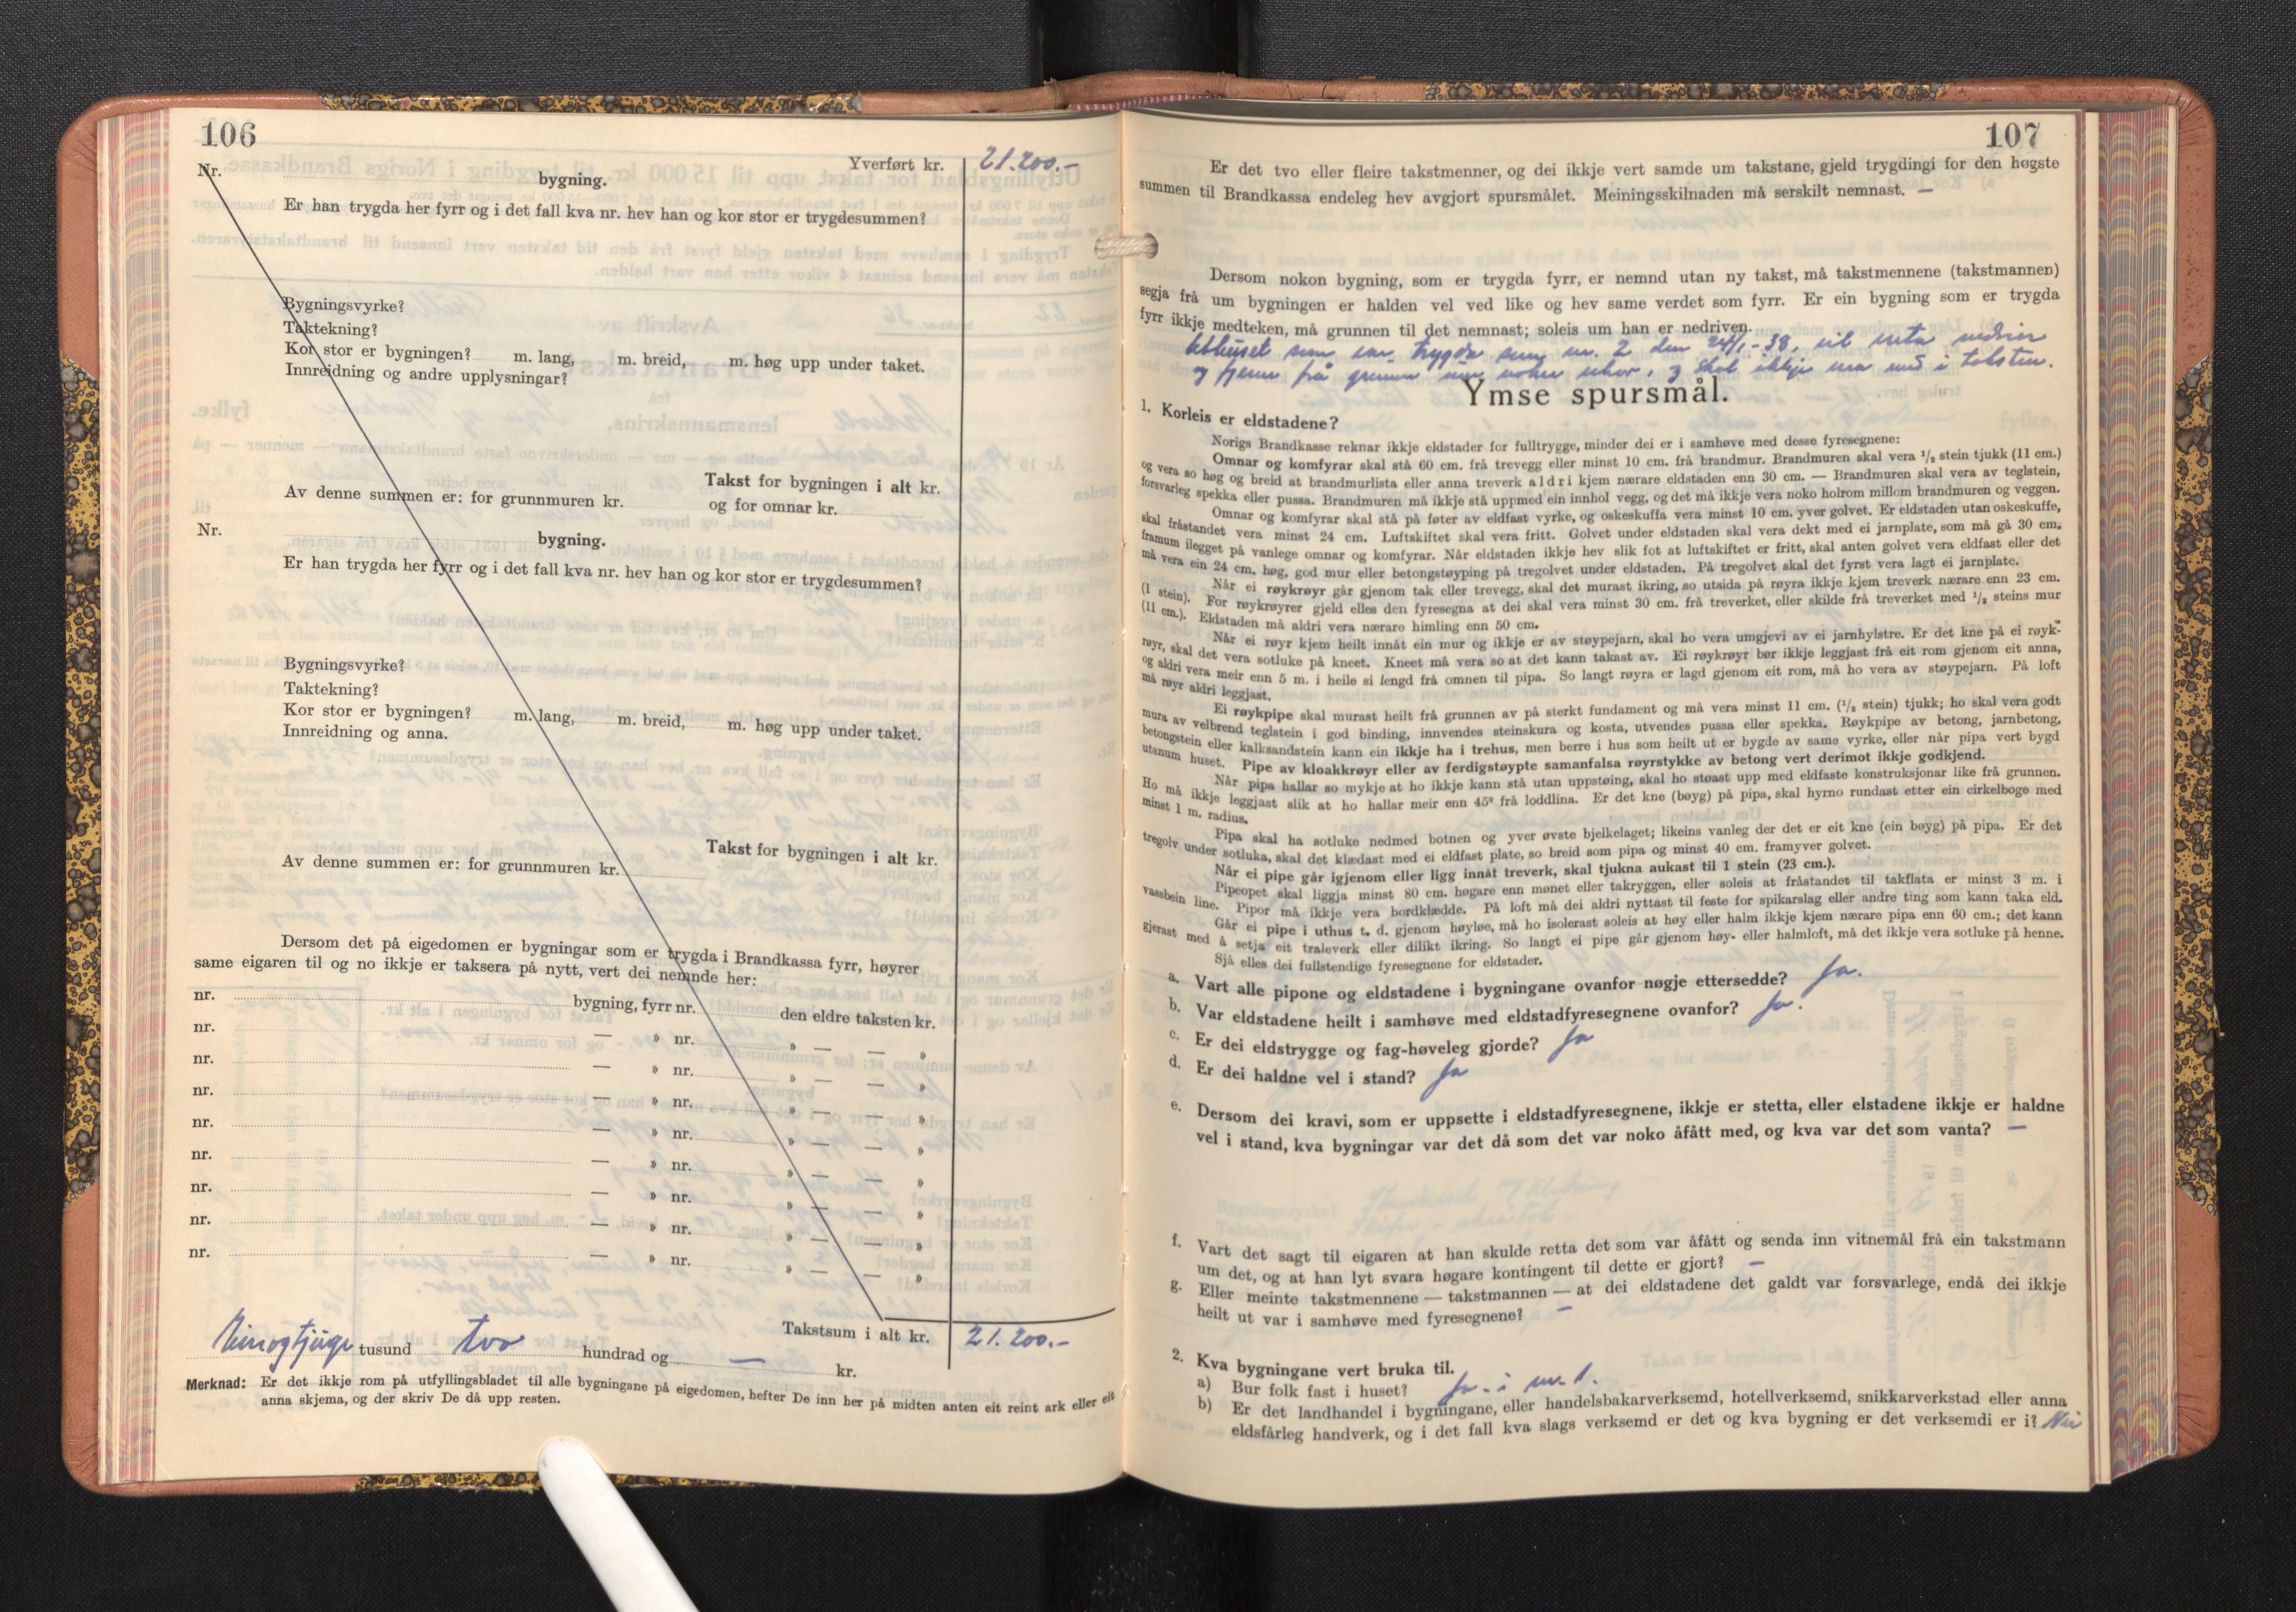 106
Yverført kr. 21.200.-
Nr. bygning.
Er han trygda her fyrr og i det fall kva nr. hev han og kor stor er trygdesummen?
Bygningsvyrke?
Taktekning?
Kor stor er bygningen? m. lang, m. breid, m. høg upp under taket.
Innreidning og andre upplysningar?
Takst for bygningen i alt kr.
Av denne summen er: for grunnmuren kr. og for omnar kr.
Nr. bygning.
Er han trygda her fyrr og i det fall kva nr. hev han og kor stor er trygdesummen?
Bygningsvyrke?
Taktekning?
Kor stor er bygningen? m. lang, m. breid, m. høg upp under taket.
Innreidning og anna.
Takst for bygningen i alt kr.
Av denne summen er: for grunnmuren kr.
Dersom det på eigedomen er bygningar som er trygda i Brandkassa fyrr, høyrer
same eigaren til og no ikkje er taksera på nytt, vert dei nemnde her:
nr. bygning, fyrr nr. den eldre taksten kr.
nr. — » nr. » — — »
nr. — » nr. » — — »
nr. — » nr. » — — »
nr. — » nr. » — — »
nr. — » nr. » — — »
nr. — » nr. » — — »
nr. — » nr. » — — »
nr. — » nr. » — — »
Takstsum i alt kr. 21.200.-
Einogtjuge tusund tvo hundrad og — kr.
Merknad: Er det ikkje rom på utfyllingsbladet til alle bygningane på eigedomen, hefter De inn her på midten anten eit reint ark eller eit
anna skjema, og der skriv De då upp resten.
107
Er det tvo eller fleire takstmenner, og dei ikkje vert samde um takstane, gjeld trygdingi for den høgste
summen til Brandkassa endeleg hev avgjort spursmålet. Meiningsskilnaden må serskilt nemnast. —
Dersom nokon bygning, som er trygda fyrr, er nemnd utan ny takst, må takstmennene (takstmannen)
segja frå um bygningen er halden vel ved like og hev same verdet som fyrr. Er ein bygning som er trygda
fyrr ikkje medteken, må grunnen til det nemnast; soleis um han er nedriven.
som var trygda som nr. 2 den 24/1-38, vil
og frå grunnen og skal ikkje vera med i taksten.
Ymse spursmål.
1. Korleis er eldstadene?
Norigs Brandkasse reknar ikkje eldstader for fulltrygge, minder dei er i samhøve med desse fyresegnene:
Omnar og komfyrar skal stå 60 cm. frå trevegg eller minst 10 cm. frå brandmur. Brandmuren skal vera ½ stein tjukk (11 cm.)
og vera so høg og breid at brandmurlista eller anna treverk aldri kjem nærare eldstaden enn 30 cm. — Brandmuren skal vera av teglstein,
forsvarleg spekka eller pussa. Brandmuren må ikkje stå uppmed ein innhol vegg, og det må ikkje vera noko holrom millom brandmuren og veggen.
Omnar og komfyrar skal stå på føter av eldfast vyrke, og oskeskuffa vera minst 10 cm. yver golvet. Er eldstaden utan oskeskuffe,
skal fråstandet vera minst 24 cm. Luftskiftet skal vera fritt. Golvet under eldstaden skal vera dekt med ei jarnplate, som må gå 30 cm.
framum ilegget på vanlege omnar og komfyrar. Når eldstaden ikkje hev slik fot at luftskiftet er fritt, skal anten golvet vera eldfast eller det
må vera ein 24 cm. høg, god mur eller betongstøyping på tregolvet under eldstaden. På tregolvet skal det fyrst vera lagt ei jarnplate.
Når ei røykrøyr går gjenom tak eller trevegg, skal det murast ikring, so utsida på røyra ikkje kjem treverk nærare enn 23 cm.
(1 stein). For røykrøyrer gjeld elles den fyresegna at dei skal vera minst 30 cm. frå treverket, eller skilde frå treverket med ½ steins mur
(11 cm.). Eldstaden må aldri vera nærare himling enn 50 cm.
Når ei røyr kjem heilt innåt ein mur og ikkje er av støypejarn, skal ho vera umgjevi av ei jarnhylstre. Er det kne på ei røyk-
røyr, skal det vera sotluke på kneet. Kneet må vera so at det kann takast av. Ei røykrøyr bør ikkje leggjast frå eit rom gjenom eit anna,
og aldri vera meir enn 5 m. i heile si lengd frå omnen til pipa. So langt røyra er lagd gjenom eit rom, må ho vera av støypejarn. På loft
må røyr aldri leggjast.
Ei røykpipe skal murast heilt frå grunnen av på sterkt fundament og må vera minst 11 cm. (½ stein) tjukk; ho skal vera godt
mura av velbrend teglstein i god binding, innvendes steinskura og kosta, utvendes pussa eller spekka. Røykpipe av betong, jarnbetong,
betongstein eller kalksandstein kann ein ikkje ha i trehus, men berre i hus som heilt ut er bygde av same vyrke, eller når pipa vert bygd
utanum huset. Pipe av kloakkrøyr eller av ferdigstøypte samanfalsa røyrstykke av betong vert derimot ikkje godkjend.
Når pipa hallar so mykje at ho ikkje kann stå utan uppstøing, skal ho støast upp med eldfaste konstruksjonar like frå grunnen.
Ho må ikkje leggjast slik at ho hallar meir enn 45° frå loddlina. Er det kne (bøyg) på pipa, skal hyrno rundast etter ein cirkelboge med
minst 1 m. radius.
Pipa skal ha sotluke nedmed botnen og yver øvste bjelkelaget; likeins vanleg der det er eit kne (ein bøyg) på pipa. Er det
tregolv under sotluka, skal det klædast med ei eldfast plate, so breid som pipa og minst 40 cm. framyver golvet.
Når ei pipe går igjenom eller ligg innåt treverk, skal tjukna aukast til 1 stein (23 cm.).
Pipeopet skal liggja minst 80 cm. høgare enn mønet eller takryggen, eller soleis at fråstandet til takflata er minst 3 m. i
vassbein line. Pipor må ikkje vera bordklædde. På loft må dei aldri nyttast til feste for spikarslag eller andre ting som kann taka eld.
Går ei pipe i uthus t. d. gjenom høyløe, må ho isolerast soleis at høy eller halm ikkje kjem nærare pipa enn 60 cm.; det kann
gjerast med å setja eit traleverk eller dilikt ikring. So langt ei pipe går gjenom høy- eller halmloft, må det ikkje vera sotluke på henne.
Sjå elles dei fullstendige fyresegnene for eldstader.
a. Vart alle pipone og eldstadene i bygningane ovanfor nøgje ettersedde? Ja.
b. Var eldstadene heilt i samhøve med eldstadfyresegnene ovanfor? Ja.
c. Er dei eldstrygge og fag-høveleg gjorde? Ja
d. Er dei haldne vel i stand? Ja
e. Dersom dei kravi, som er uppsette i eldstadfyresegnene, ikkje er stetta, eller elstadene ikkje er haldne
vel i stand, kva bygningar var det då som det var noko åfått med, og kva var det som vanta? —
f. Vart det sagt til eigaren at han skulde retta det som var åfått og senda inn vitnemål frå ein takstmann
um det, og at han lyt svara høgare kontingent til dette er gjort? —
g. Eller meinte takstmennene — takstmannen — at dei eldstadene det galdt var forsvarlege, endå dei ikkje
heilt ut var i samhøve med fyresegnene? —
2. Kva bygningane vert bruka til.
a) Bur folk fast i huset? Ja. i nr. 1.
b) Er det landhandel i bygningane, eller handelsbakarverksemd, hotellverksemd, snikkarverkstad eller anna
eldsfårleg handverk, og i det fall kva slags verksemd er det og kva bygning er det verksemdi er i? Nei